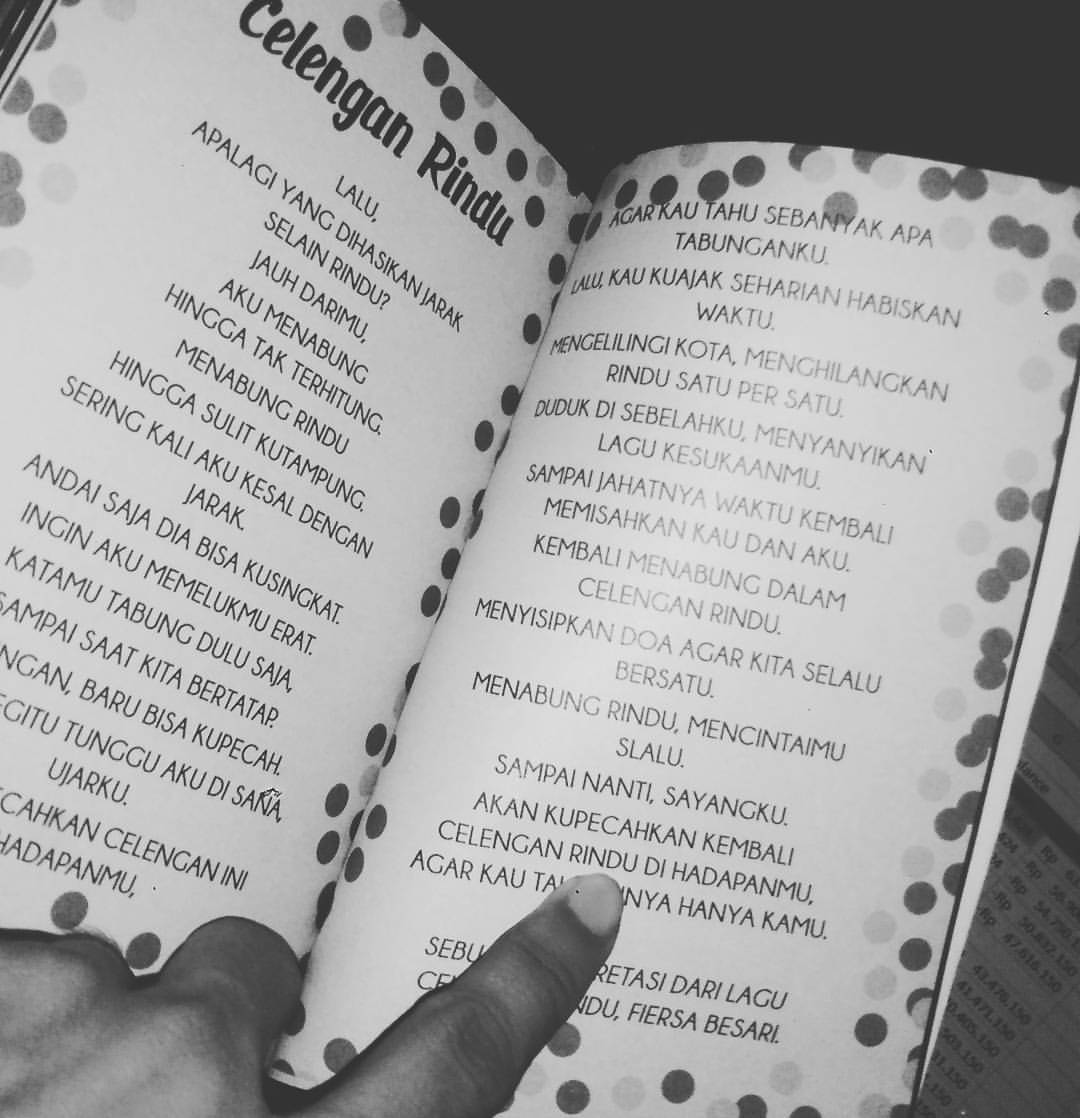 Celengan Rindu
LALU,
APALAGI YANG DIHASIKAN JARAK
SELAIN RINDU?
JAUH DARIMU,
AKU MENABUNG
HINGGA TAK TERHITUNG.
MENABUNG RINDU
HINGGA SULIT KUTAMPUNG.
SERING KALI AKU KESAL DENGAN
JARAK.
ANDAI SAJA DIA BISA KUSINGKAT.
INGIN AKU MEMELUKMU ERAT.
KATAMU TABUNG DULU SAJA,
SAMPAI SAAT KITA BERTATAP.
BARU BISA KUPECAH.
TUNGGU AKU DI SANA,
UJARKU.
CELENGAN INI
HADAPANMU,
AGAR KAU TAHU SEBANYAK APA
TABUNGANKU.
LALU, KAU KUAJAK SEHARIAN HABISKAN
WAKTU.
MENGELILINGI KOTA, MENGHILANGKAN
RINDU SATU PER SATU.
DUDUK DI SEBELAHKU, MENYANYIKAN
LAGU KESUKAANMU.
SAMPAI JAHATNYA WAKTU KEMBALI
MEMISAHKAN KAU DAN AKU.
KEMBALI MENABUNG DALAM
CELENGAN RINDU.
MENYISIPKAN DOA AGAR KITA SELALU
BERSATU.
MENABUNG RINDU, MENCINTAIMU
SLALU.
SAMPAI NANTI, SAYANGKU.
AKAN KUPECAHKAN KEMBALI
CELENGAN RINDU DI HADAPANMU,
AGAR KAU HANYA KAMU.
DARI LAGU
FIERSA BESARI.